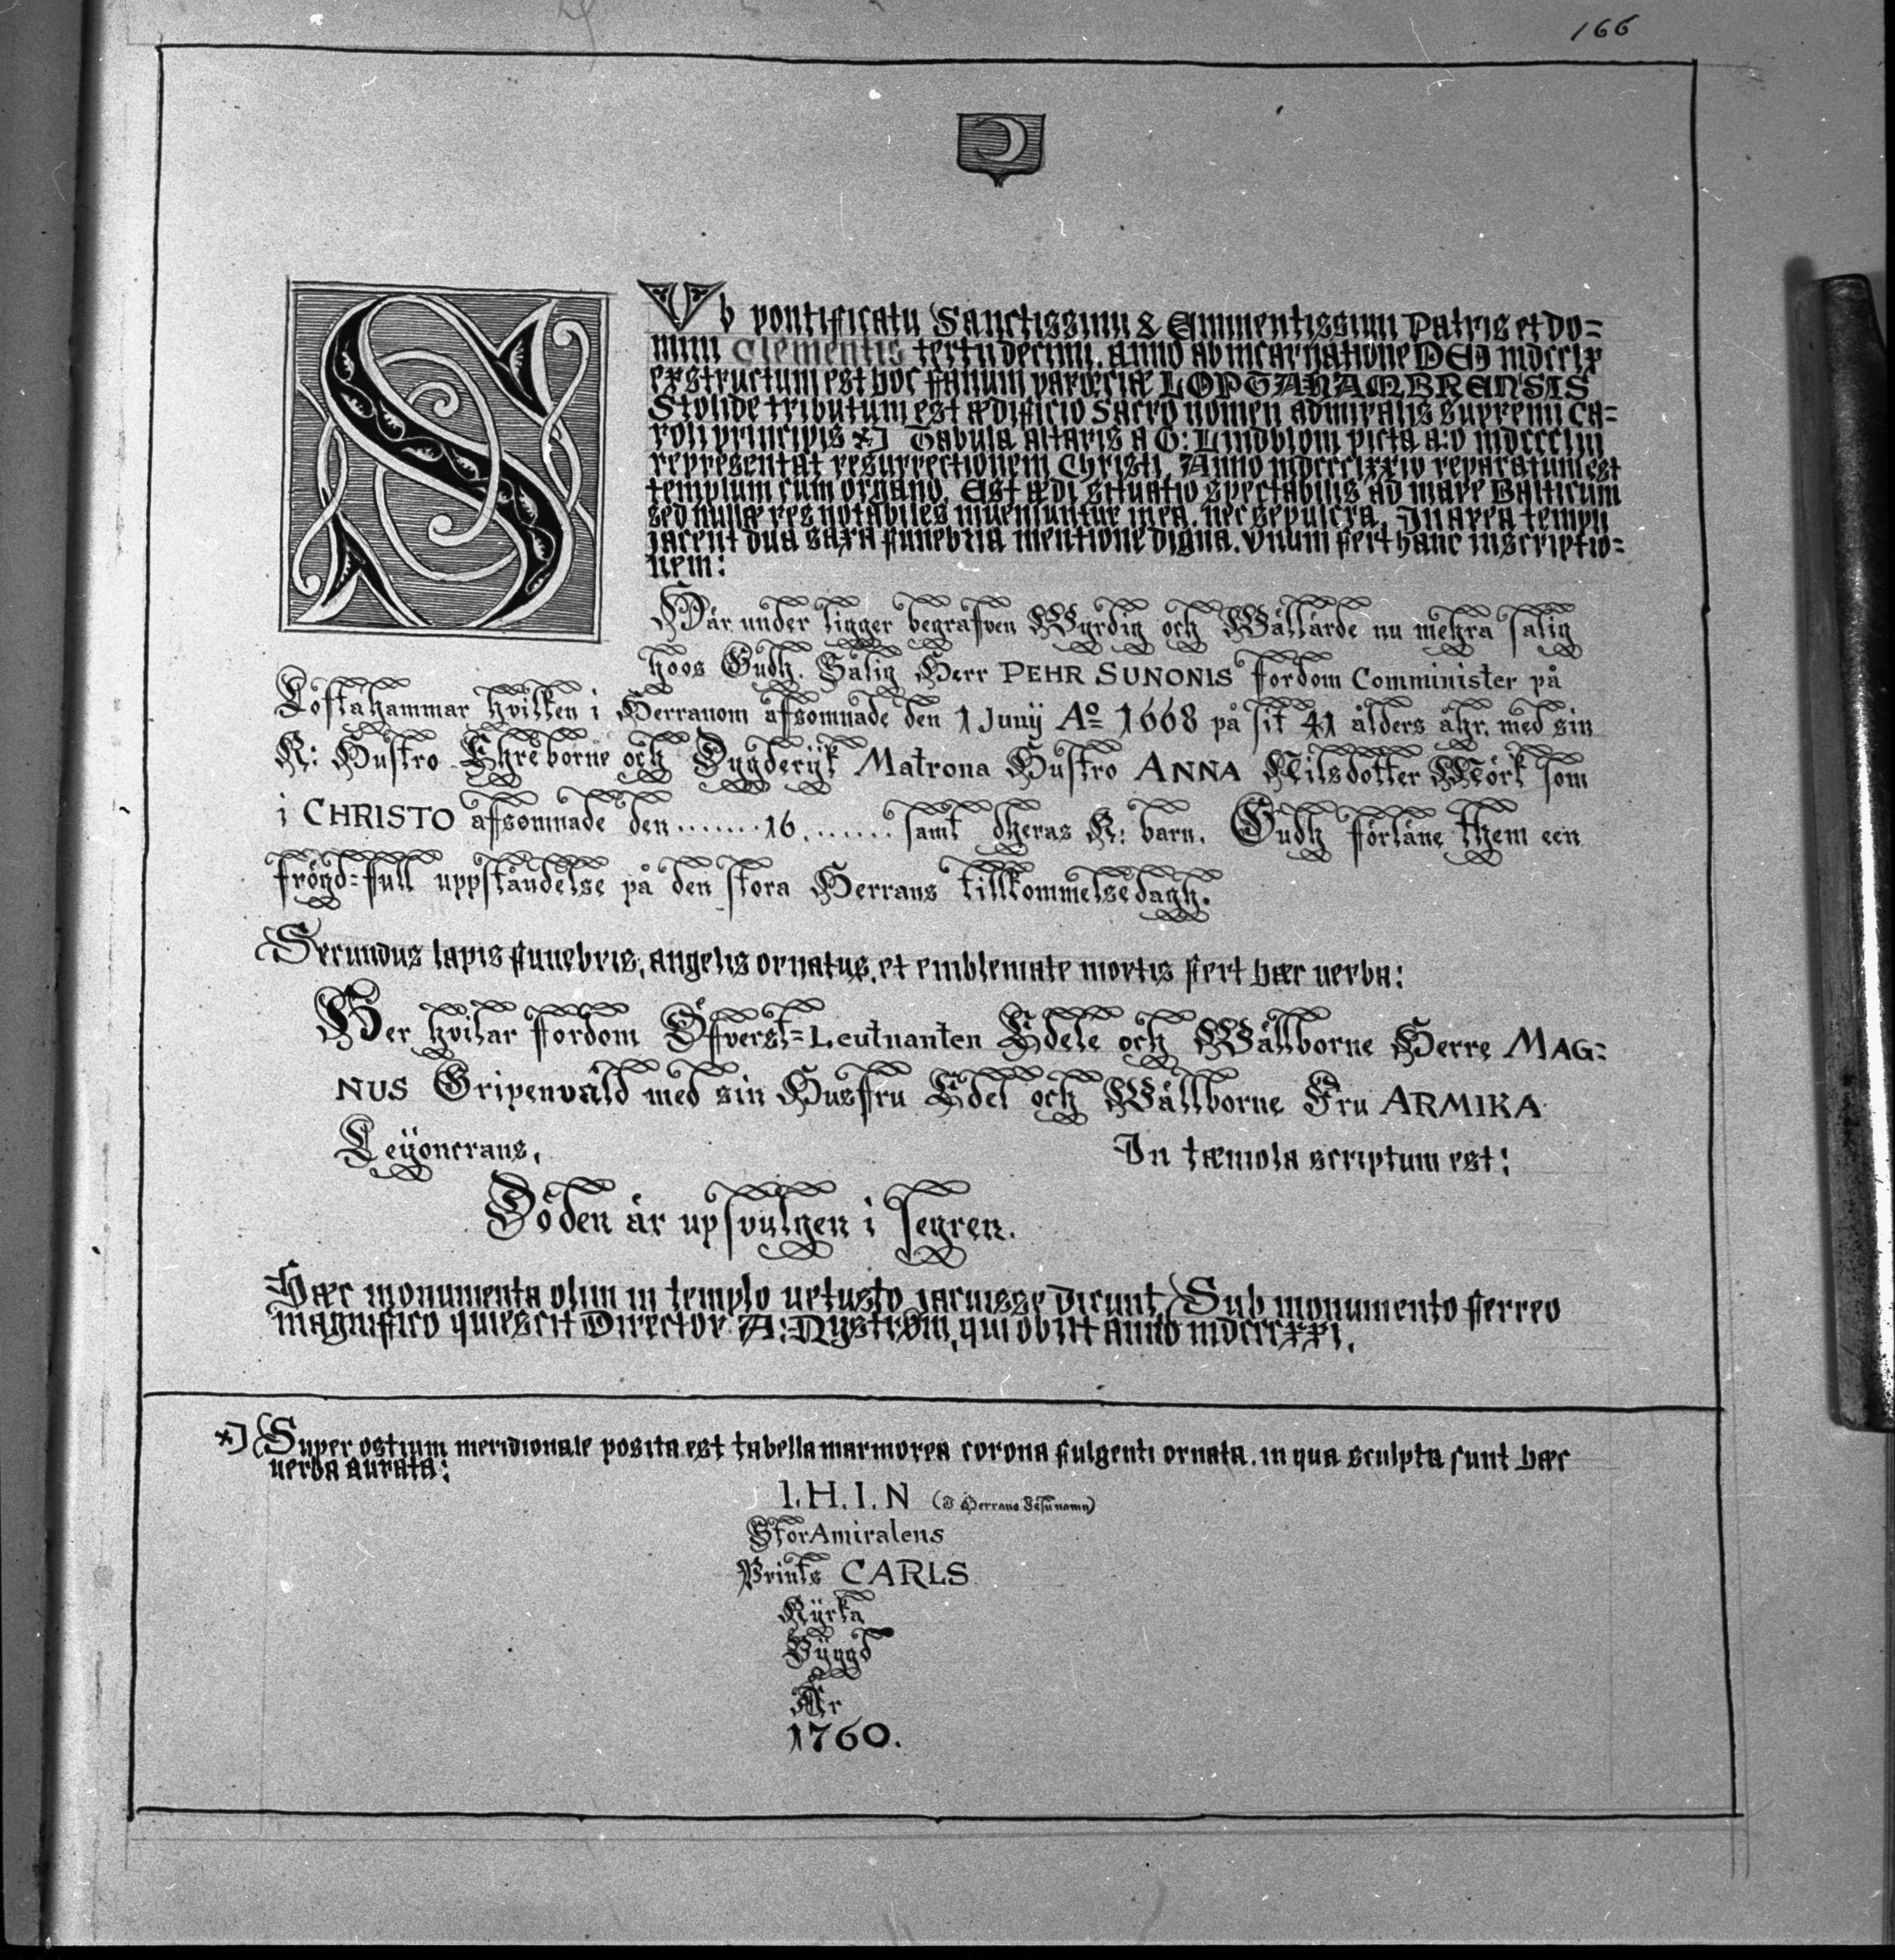 166
SVb pontificatu Sanctissimi & Eminentissimi Patris et do=
mini Clementis tertii decimi, anno ab incarnatione DEI mdcclx
exstructum est hoc fanum parœciæ LOPTAHAMBRENSIS
Stolide tributum est ædificio sacro nomen admiralis supremi Ca=
roli principis *] Tabula altaris a G: Lindblom picta a:o mdccciiii
representat resurrectionem Christi. Anno mdccclxxiv reparatum est
templum cum organo. Est ædi situatio spectabilis ad mare Balticum
sed nullæ res notabiles inveniuntur in ea, nec sepulcra. In area templi
jacent dua saxa funebria mentione digna. Unum fert hanc inscriptio=
nem:
Här under ligger begrafven Wyrdig och Wällärde nu mehra salig
hoos Gudh. Salig Herr PEHR SUNONIS fordom Comminister på
Loftahammar hvilken i Herranom afsomnade den 1 Junij Ao 1668 på sit 41 ålders åhr, med sin
K: Hustro Ehreborne och Dygderijk Matrona Hustro ANNA Nilsdotter Mörk som
i CHRISTO afsomnade den ....... 16 ....... samt dheras K: barn. Gudh förläne them een
frögd=full uppståndelse på den stora Herrans tillkommelsedagh.
Secundus lapis funebris, angelis ornatus, et emblemate mortis fert hæc verba:
Her hvilar fordom Öfverst=Leutnanten Edele och Wällborne Herre MAG=
NUS Gripenvald med sin Husfru Edel och Wällborne Fru ARMIKA
Leÿoncrans,
In tæmola scriptum est:
Döden är upsvulgen i segren.
Hæc monumenta olim in templo vetusto jacuisse dicunt. Sub monumento ferreo
magnifico quiescit Director A: Nyström, qui obiit anno mdcccxxi.
*] Super ostium meridionale posita est tabella marmorea corona fulgenti ornata, in qua sculpta sunt hæc
verba aurata:
I.H.I.N (I Herrans Jesu namn)
StorAmiralens
Prints CARLS
Kÿrka
Bÿggd
År
1760.